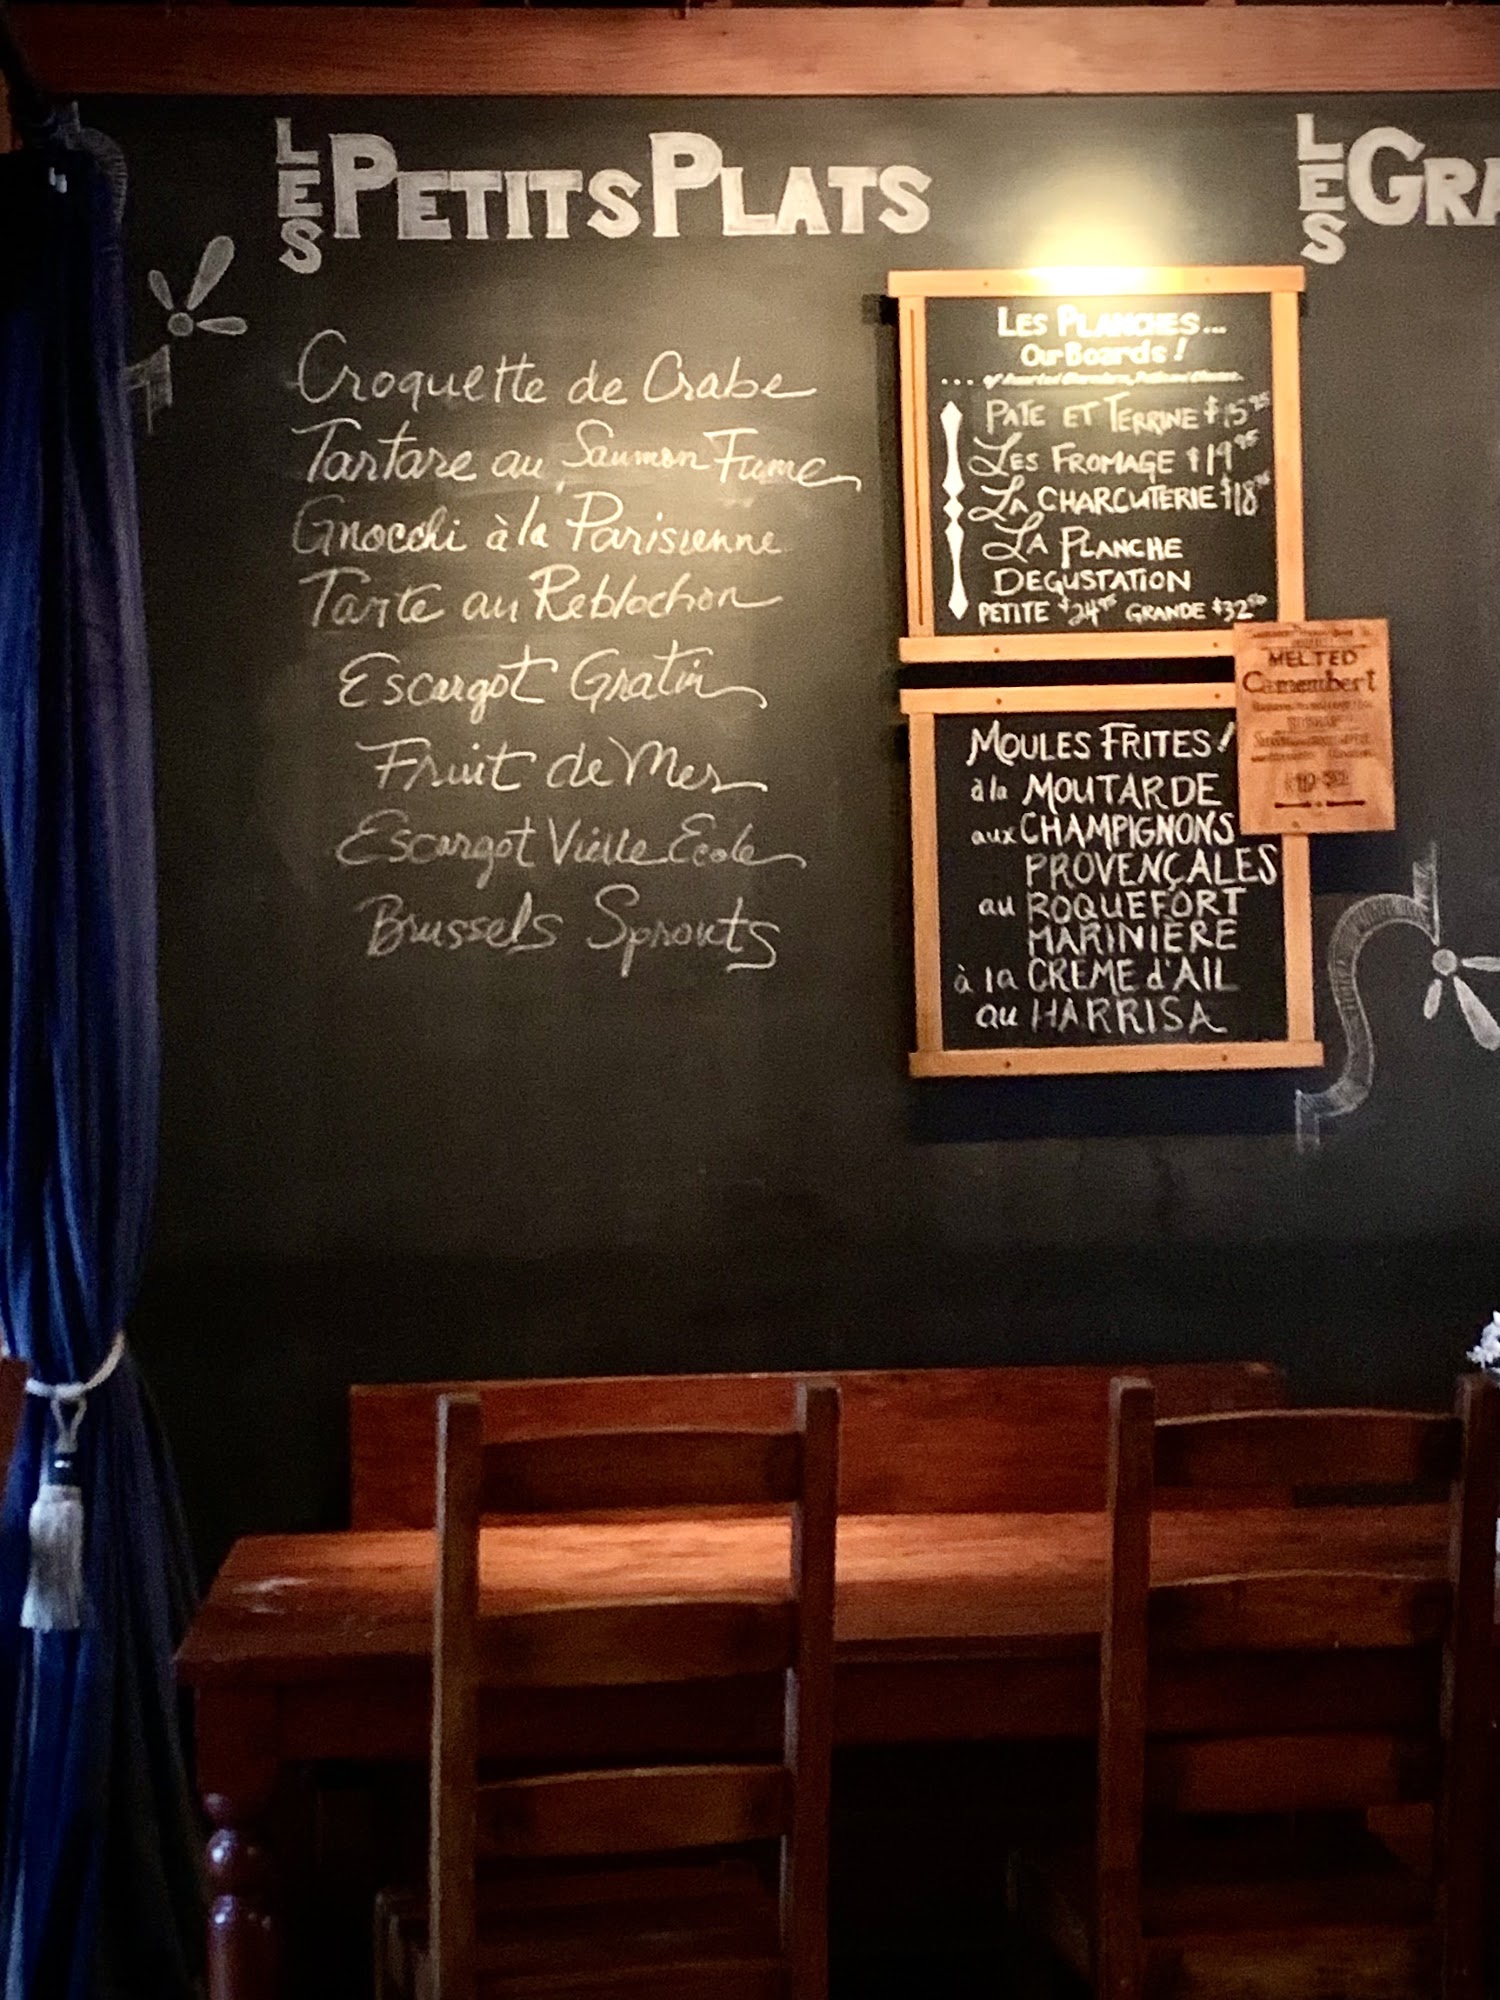 LES PETITS PLATS
Croquette de Crabe
Tartare au Saumon Fume
Gnocchi à la Parisienne
Tarte au Reblochon
Escargot Gratin
Fruit de Mer
Escargot Vielle Ecole
Brussels Sprouts
LES PLANCHES...
Our Boards!
PATE ET TERRINE $15.95
LES FROMAGE $19.95
LA CHARCUTERIE $18
LA PLANCHE
DEGUSTATION
PETITE $24.95 GRANDE $32.50
MELTED
Camembert
MOULES FRITES!
à la MOUTARDE
aux CHAMPIGNONS
PROVENÇALES
au ROQUEFORT
MARINIÈRE
à la CRÈME d'AIL
au HARRISA
LES GRA